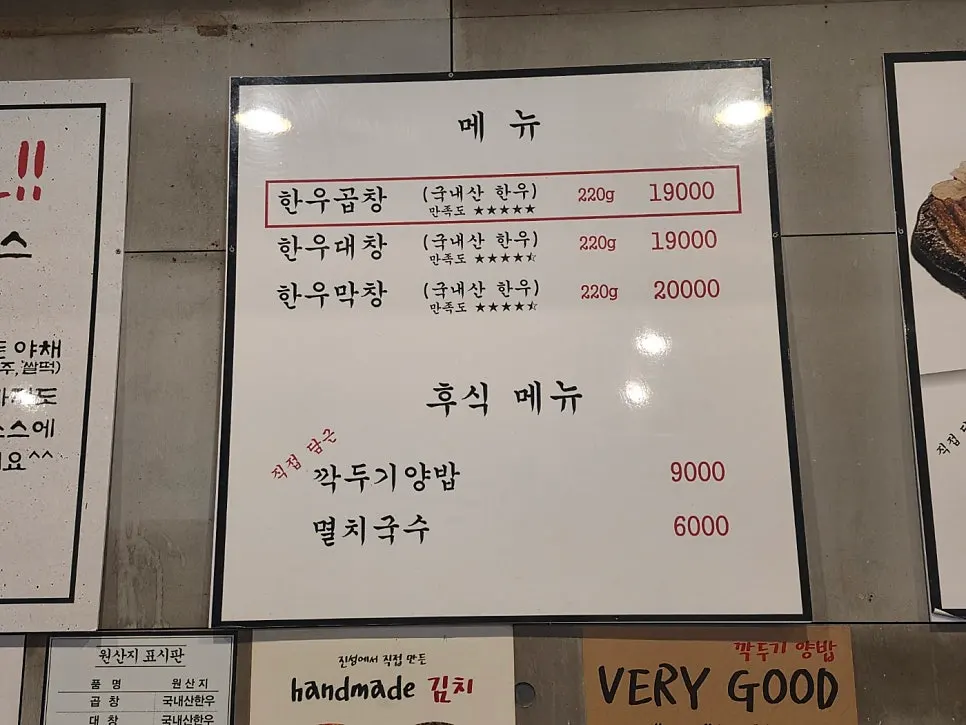 메 뉴
한우곱창 (국내산 한우) 220g 19000
만족도 ★★★★★
한우대창 (국내산 한우) 220g 19000
만족도 ★★★★⯪
한우막창 (국내산 한우) 220g 20000
만족도 ★★★★⯪
후식 메뉴
직접 담근
깍두기양밥 9000
멸치국수 6000
!!
스
야채
주, 쌀떡)
소스에
요^^
직접
원산지 표시판
품 명 원 산 지
곱 창 국내산한우
대 창 국내산한우
진성에서 직접 만든
handmade 김치
깍두기 양밥
VERY GOOD